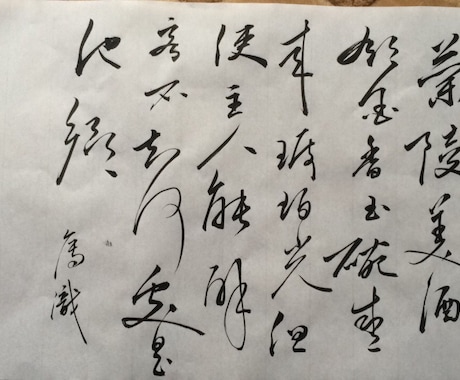 蘭陵美酒
郁金香玉碗盛
来琥珀光但
使主人能醉
客不知何處是
他鄉